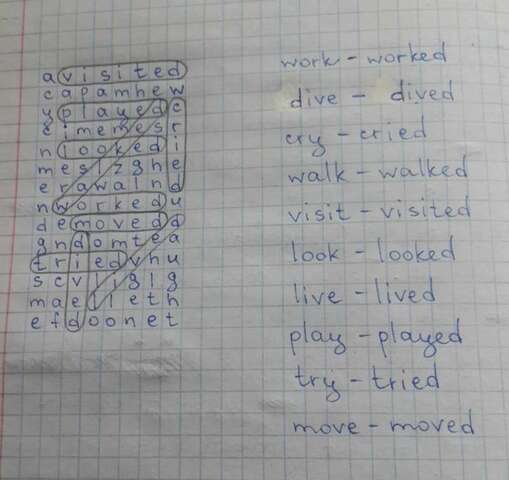 a v i s i t e d
c a p a m h e w
y p l a y e d c
e i m e m e s r
n l o o k e d i
m e s l z g h e
e r a w a l n d
n w o r k e d u
d e m o v e d d
g n d o m t e a
t r i e d v h u
s c v l i g l g
m a e l l e t h
e f d o o n e t
work - worked
dive - dived
cry - cried
walk - walked
visit - visited
look - looked
live - lived
play - played
try - tried
move - moved